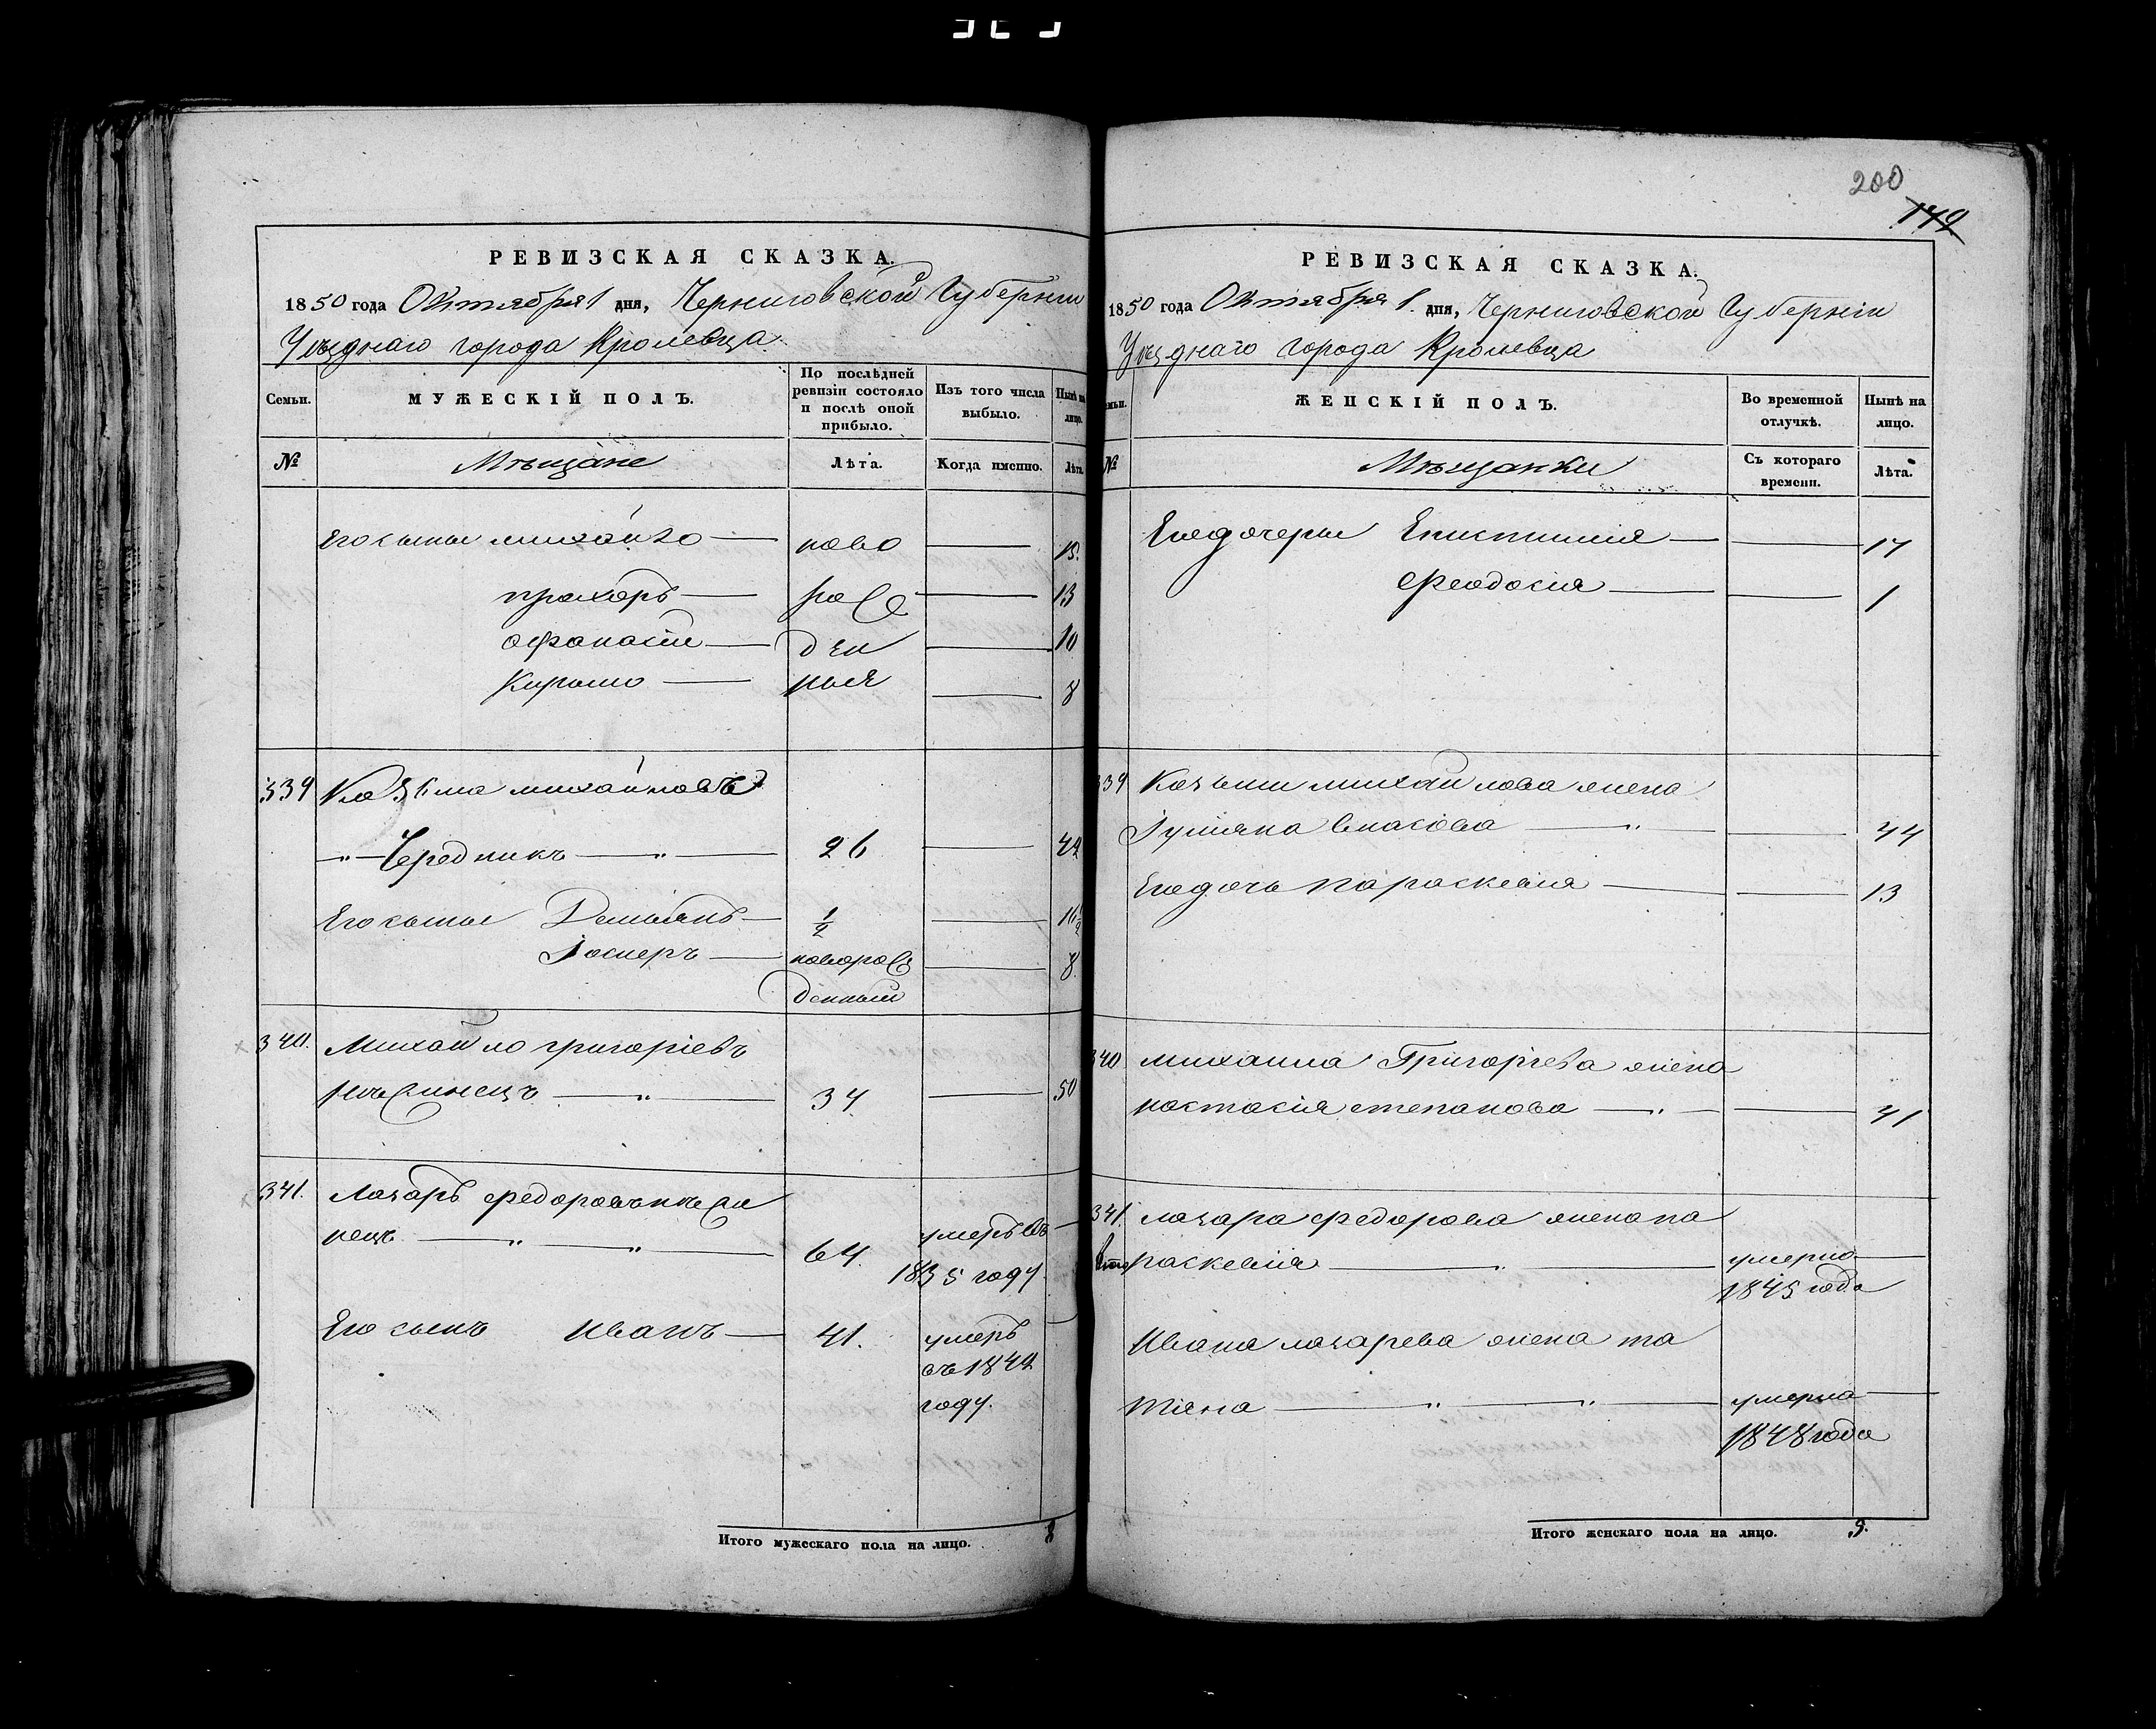 200
149
РЕВИЗСКАЯ СКАЗКА.
1850 года Октября 1 дня, Черниговской Губерніи
Уѣзднаго города Кролевца
Семьи. МУЖЕСКІЙ ПОЛЪ. По послѣдней ревизіи состояло и послѣ оной прибыло. Изъ того числа выбыло. Нынѣ на лицо.
№ Мѣщане Лѣта. Когда именно. Лѣта
Его сыны михайло — ново — 15.
прохоръ — рож — 13
афанасій — ден — 10
Кирило — ныя — 8
339 Козьма михайловъ
Чередникъ — 26 — 42
Его сыны Демьянъ — 1/2 — 16 1/2
— новорож — 8
денный
340. Михайло григоріевъ
34 — 50
341. Лазарь федоровъ
нецъ — 64. умеръ въ —
1835 году
Его сынъ Иванъ — 41. умеръ —
въ 1842
году.
Итого мужескаго пола на лицо. 8
РЕВИЗСКАЯ СКАЗКА.
1850 года Октября 1. дня, Черниговской Губерніи
Уѣзднаго города Кролевца
ЖЕНСКІЙ ПОЛЪ. Во временной отлучкѣ. Нынѣ на лицо.
№ Мѣщанки Съ котораго времени. Лѣта.
Его дочеры Епистимія — — 17
Феодосия — — 1
339 Козьми михайлова жена
Іуліяна власова — — 44
Его дочь параскевия — — 13
340 михаила Григорьева жена
настасія степанова — — 41
341. лазара федорова жена па
раскевія — умерла —
1845 года
Ивана лазарева жена та
тіяна — умерла —
1848 года
Итого женскаго пола на лицо. 5.